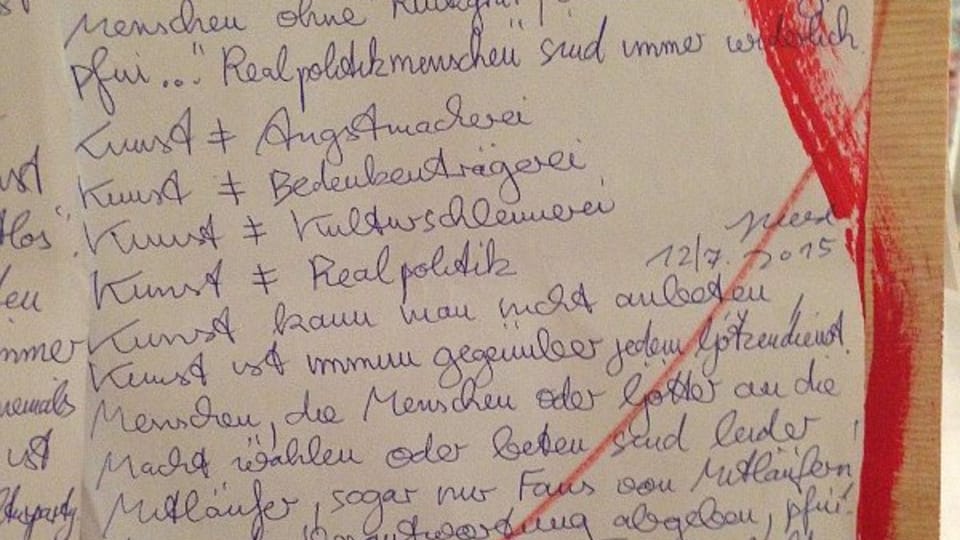 Menschen ohne
pfui..." "Realpolitikmenschen" sind immer widerlich
Kunst ≠ Angstmacherei
Kunst ≠ Bedenkenträgerei
Kunst ≠ Kulturschleimerei
Kunst ≠ Realpolitik
12/7. 2015
Kunst kann man nicht anbeten,
Kunst ist immun gegenüber jedem Götzendienst.
Menschen, die Menschen oder Götter an die
Macht wählen oder beten sind leider
Mitläufer, sogar nur Fans von Mitläufern
abgeben, pfui!
ist
niemals
ist